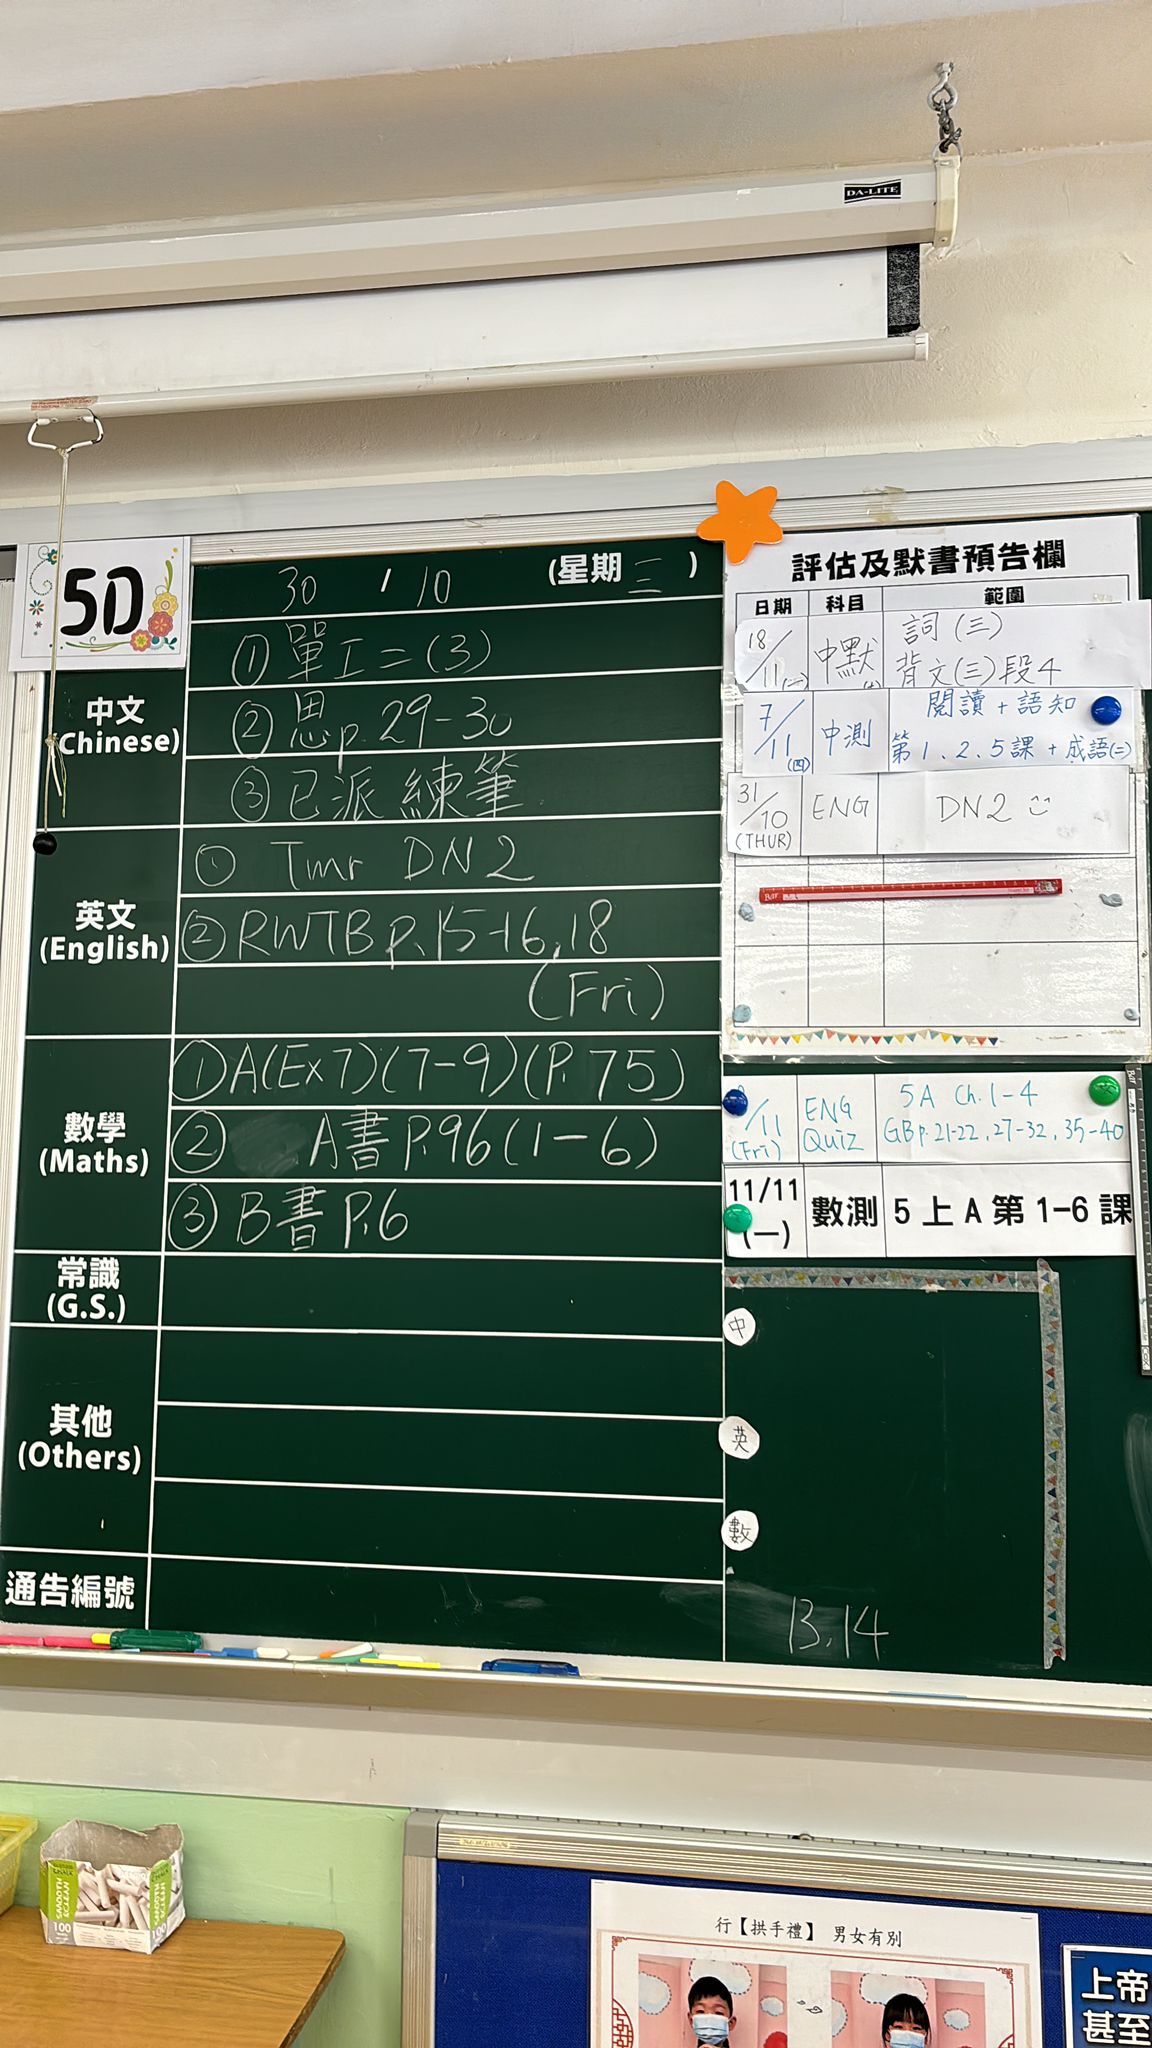 DA-LITE
5D
30 / 10 (星期三)
中文
(Chinese)
① 單工二(3)
② 思p.29-30
③ 已派 練筆
英文
(English)
① Tmr DN2
② RWTB p.15-16,18
(Fri)
數學
(Maths)
① A(Ex7)(7-9)(P.75)
② A書 P.96(1-6)
③ B書 P.6
常識
(G.S.)
其他
(Others)
通告編號
評估及默書預告欄
日期 科目 範圍
18/11(一) 中默 詞(三)
背文(三)段4
7/11(四) 中測 閱讀+語知
第1、2、5課+成語(二)
31/10 (THUR) ENG DN2
/11 (Fri) ENG Quiz 5A Ch.1-4
GB p.21-22, 27-32, 35-40
11/11 (一) 數測 5上A第1-6課
中
英
數
13,14
100
行【拱手禮】 男女有別
上帝
甚至